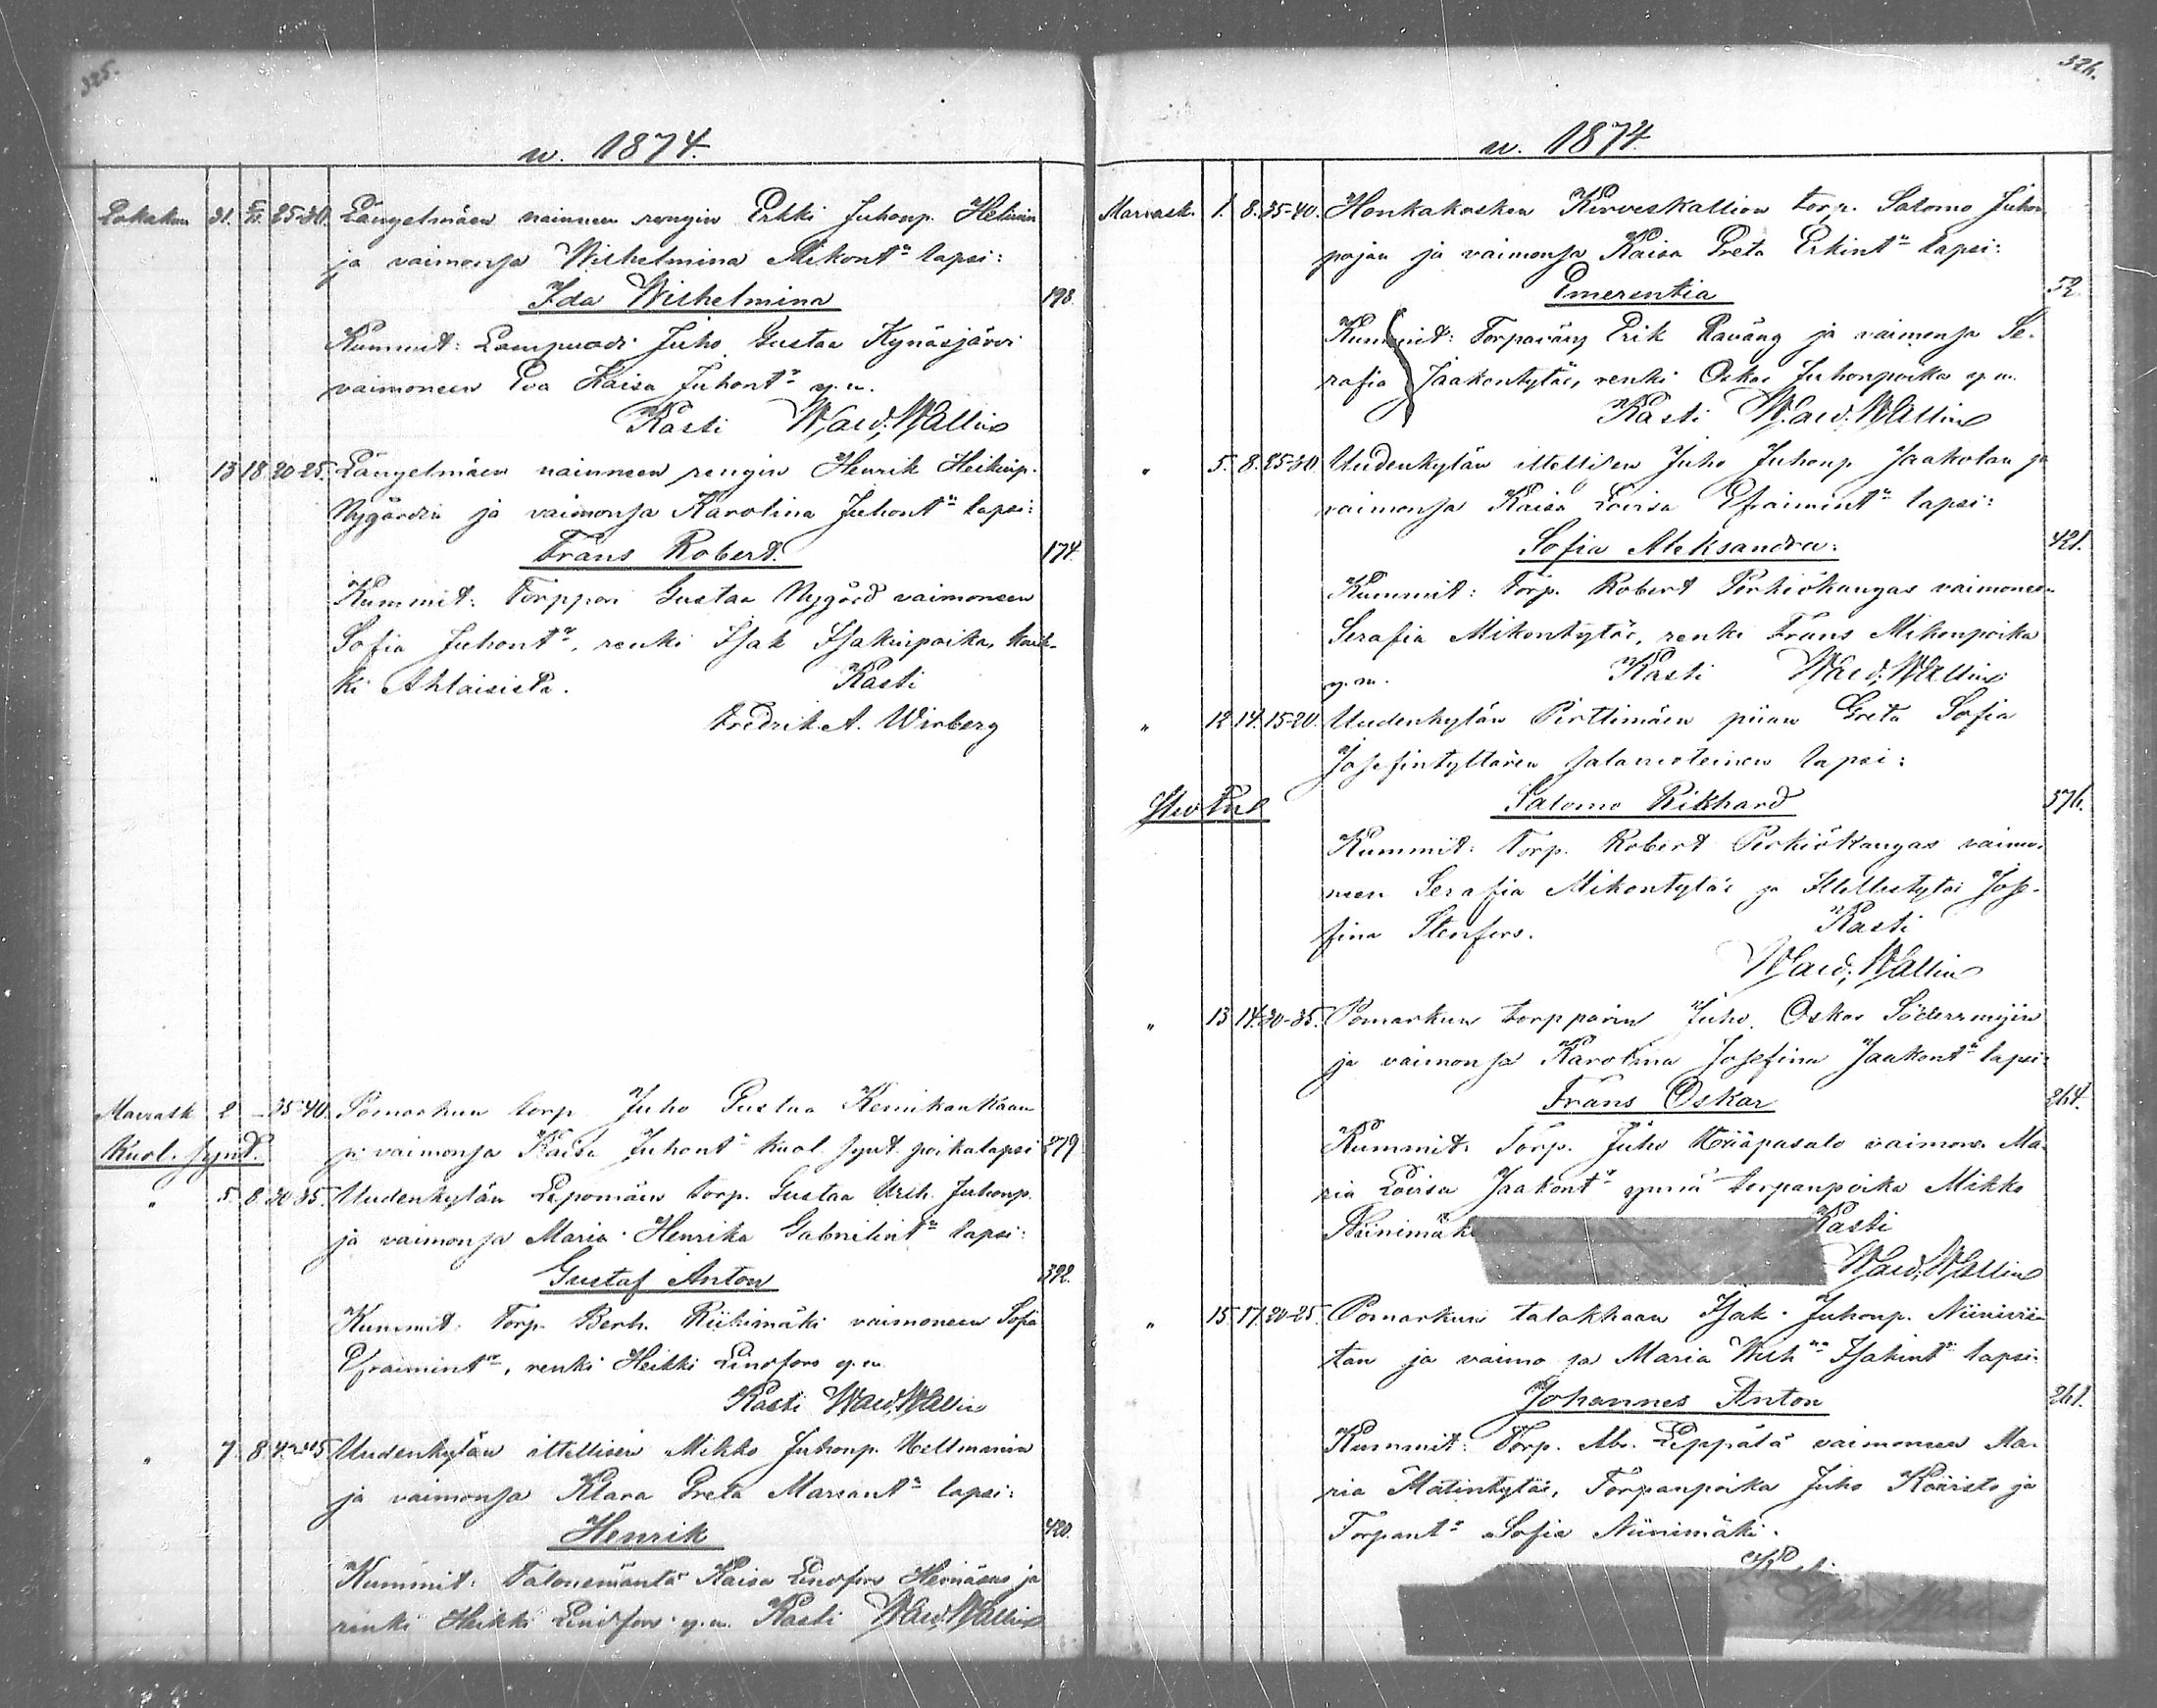 325.
w. 1874.
Lokakuu 31. 25-30. Längelmäen nainneen rengin Erkki Juhonp. Helinin
ja vaimonsa Wilhelmina Mikontn lapsi:
Ida Wilhelmina 198.
Kummit: Lampuodi Juho Gustaa Kynäsjärvi
vaimoneen Eva Kaisa Juhontr y.m.
Kasti Wald. Wallin
" 13 18 20-25. Längelmäen nainneen rengin Henrik Heikinp.
Nygårdin ja vaimonsa Karolina Juhontn lapsi:
Frans Robert. 174.
Kummit: Torppari Gustaa Nygård vaimoneen
Sofia Juhontr, renki Isak Isakinpoika, kaik-
ki Ahlaisista. Kasti
Fredrik A. Wirberg
Marrask 2 – 35-40. Pomarkun torp. Juho Gustaa
Kuol. synt. ja vaimonsa Kaisa Juhontn kuol. synt. poikalapsi 279
" 5. 8. 30-35. Uudenkylän Leponiäen torp. Gustaa Wilh. Juhonp.
ja vaimonsa Maria Henrika Gabrielintn lapsi:
Gustaf Anton 392.
Kummit: Torp. Berh. Riihimäki vaimoneen Sofia
Efraimintr, renki Heikki Lindfors y.m.
Kasti Wald. Wallin
" 7. 8. Uudenkylän itellisen Mikko Juhonp. Hellmanin
ja vaimonsa Klara Greta Marsantn lapsi:
Henrik 420.
Kummit: Talonemäntä Kaisa Lindfors Heinäsus ja
renki Heikki Lindfors y.m. Kasti Wald. Wallin
326.
w. 1874.
Marrask. 1. 8. 35-40. Honkakosken Kirveskallion torp. Salomo Juhon
pojan ja vaimonsa Kaisa Greta Erkintn lapsi:
Emerentia 52.
Kummit: Torpaväng Erik Raväng ja vaimonsa Se-
rafia Jaakontytär, renki Oskar Juhonpoika y.m.
Kasti Wald. Wallin
" 5. 8. 25-30. Uudenkylän itellisen Juho Juhonp. Jaakolan ja
vaimonsa Kaisa Lovisa Efraimintn lapsi:
Sofia Aleksandra. 421.
Kummit: Torp. Robert Perkiökangas vaimoneen
Serafia Mikontytär, renki Frans Mikonpoika
y.m. Kasti Wald. Wallin
" 12. 14. 15-20. Uudenkylän Perttimäen piian Greta Sofia
Josefintyttären salavoteinen lapsi:
Salomo Rikhard 376.
Kummit: Torp. Robert Perkiökangas vaimo-
neen Serafia Mikontytär ja Itellistytär Jose-
fina Stenfors. Kasti
Wald. Wallin
" 13 14. 30-35. Pomarkun torpparin Juho Oskar Södermyin
ja vaimonsa Karolina Josefina Jaakontn lapsi:
Frans Oskar 264.
Kummit: Torp. Juho Kääpäsalo vaimone. Ma-
ria Lovisa Jaakontr ynnä torpanpoika Mikko
Niinimäk Kasti
Wald. Wallin
" 15 17. 20-25. Pomarkun talokkaan Isak Juhonp. Niinivii-
tan ja vaimonsa Maria Wilhna Isakintn lapsi:
Johannes Anton 261.
Kummit: Torp. Ab. Leppälä vaimoneen Ma-
ria Matintytär, Torpanpoika Juho Kääristo ja
Torpantr Sofia Niinimäki.
Kasti
Wald. Wallin